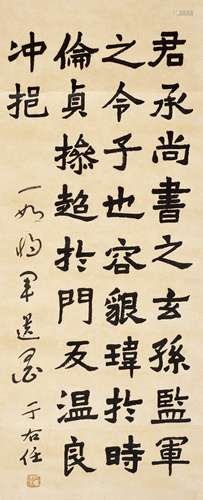 君承尚書之玄孫監軍
之令子也容貌瑋於時
倫貞操超於門友温良
冲挹
一如将軍遺墨 于右任